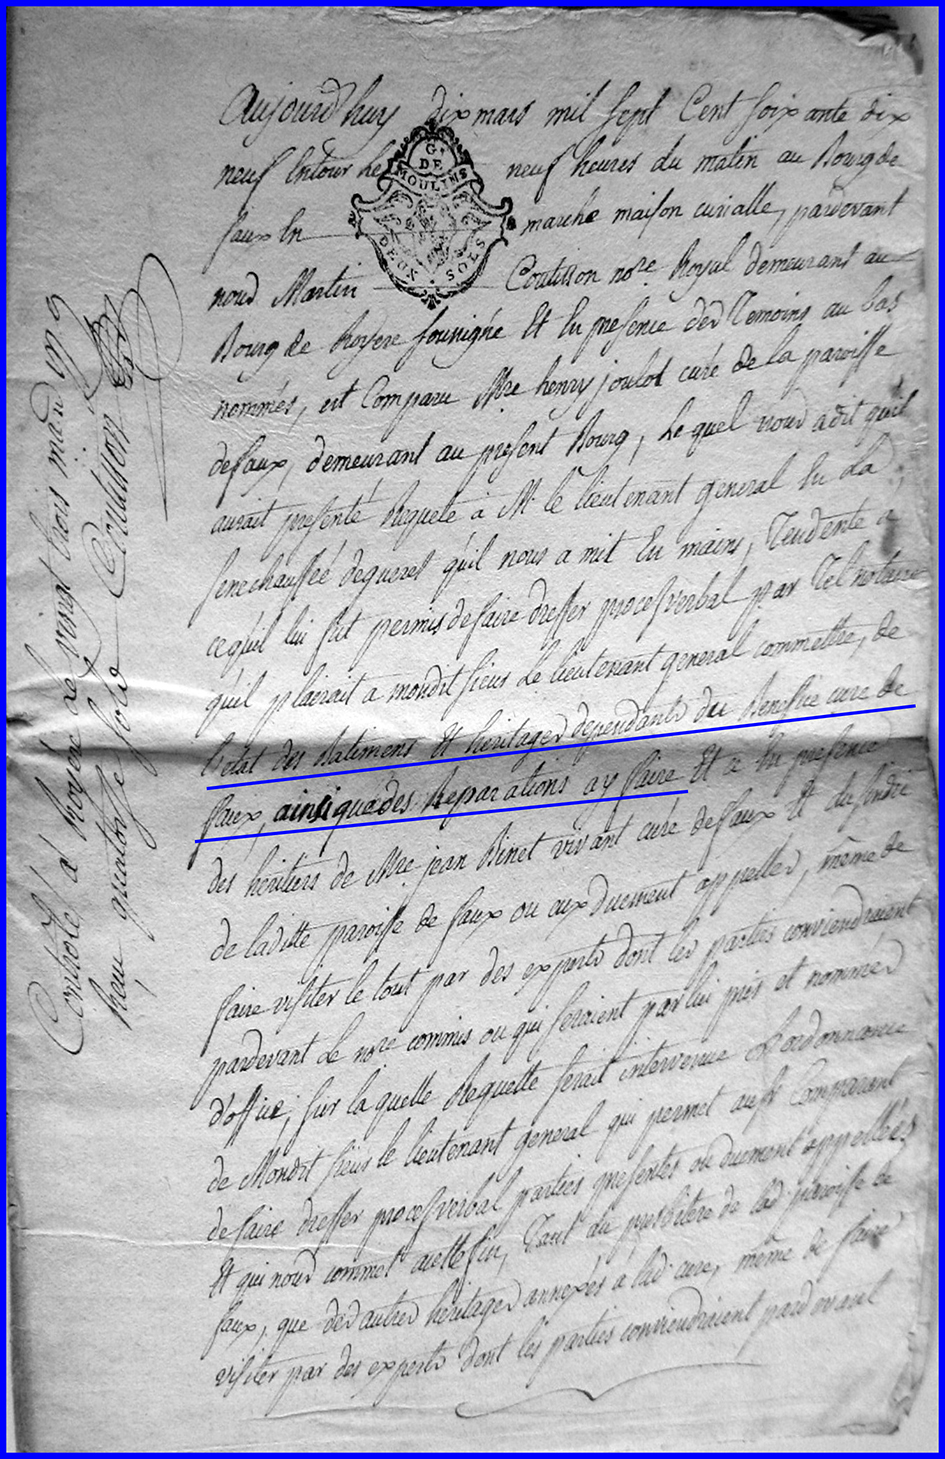 Aujourd'huy dix mars mil sept Cent soixante dix
neuf Entour les neuf heures du matin au Bourg de
faux En marche maison curialle, pardevant
nous Martin Coutisson nore. Royal demeurant au
Bourg de Royere soussigné Et En presence des Temoins au bas
nommés, est Comparu Mre henry joulot curé de la paroisse
defaux, demeurant au present Bourg, Lequel nous adit qu'il
aurait presenté Requete à M. le lieutenant general En La
senechaussée degueret qu'il nous a mit En mains, Tendente a
cequ'il lui fut permis defaire dresser procesverbal par Tel notaire
qu'il plairait a mondit sieur Le lieutenant general commettre, de
l'état des Batiments Et héritages dépendants du Benefice cure de
faux, ainsi que des Reparations ay faire Et ce En presence
des héritiers de Mre jean Binet vivant curé defaux Et du sindic
de laditte paroisse de faux ou eux Duement appellés, même de
faire visiter le tout par des experts dont les parties conviendraient
pardevant Le nore commis ou qui seraient par lui pris et nommés
d'office; sur laquelle Requette serait intervenue L'ordonnance
de Mondit sieur le lieutenant general qui permet audt Comparant
de faire dresser procesverbal parties presentes ou duement appellées
Et qui nous commet acette fin, Tant du presbitere de lad paroisse de
faux, que des autres héritages annexés a lad cure, même de faire
visiter par des experts dont les parties conviendraient pardevant
G. DE MOULINS
DEUX SOLS
Controlé a Royere Le vingt trois mars 1779
Reçu quatorze sols Coutisson